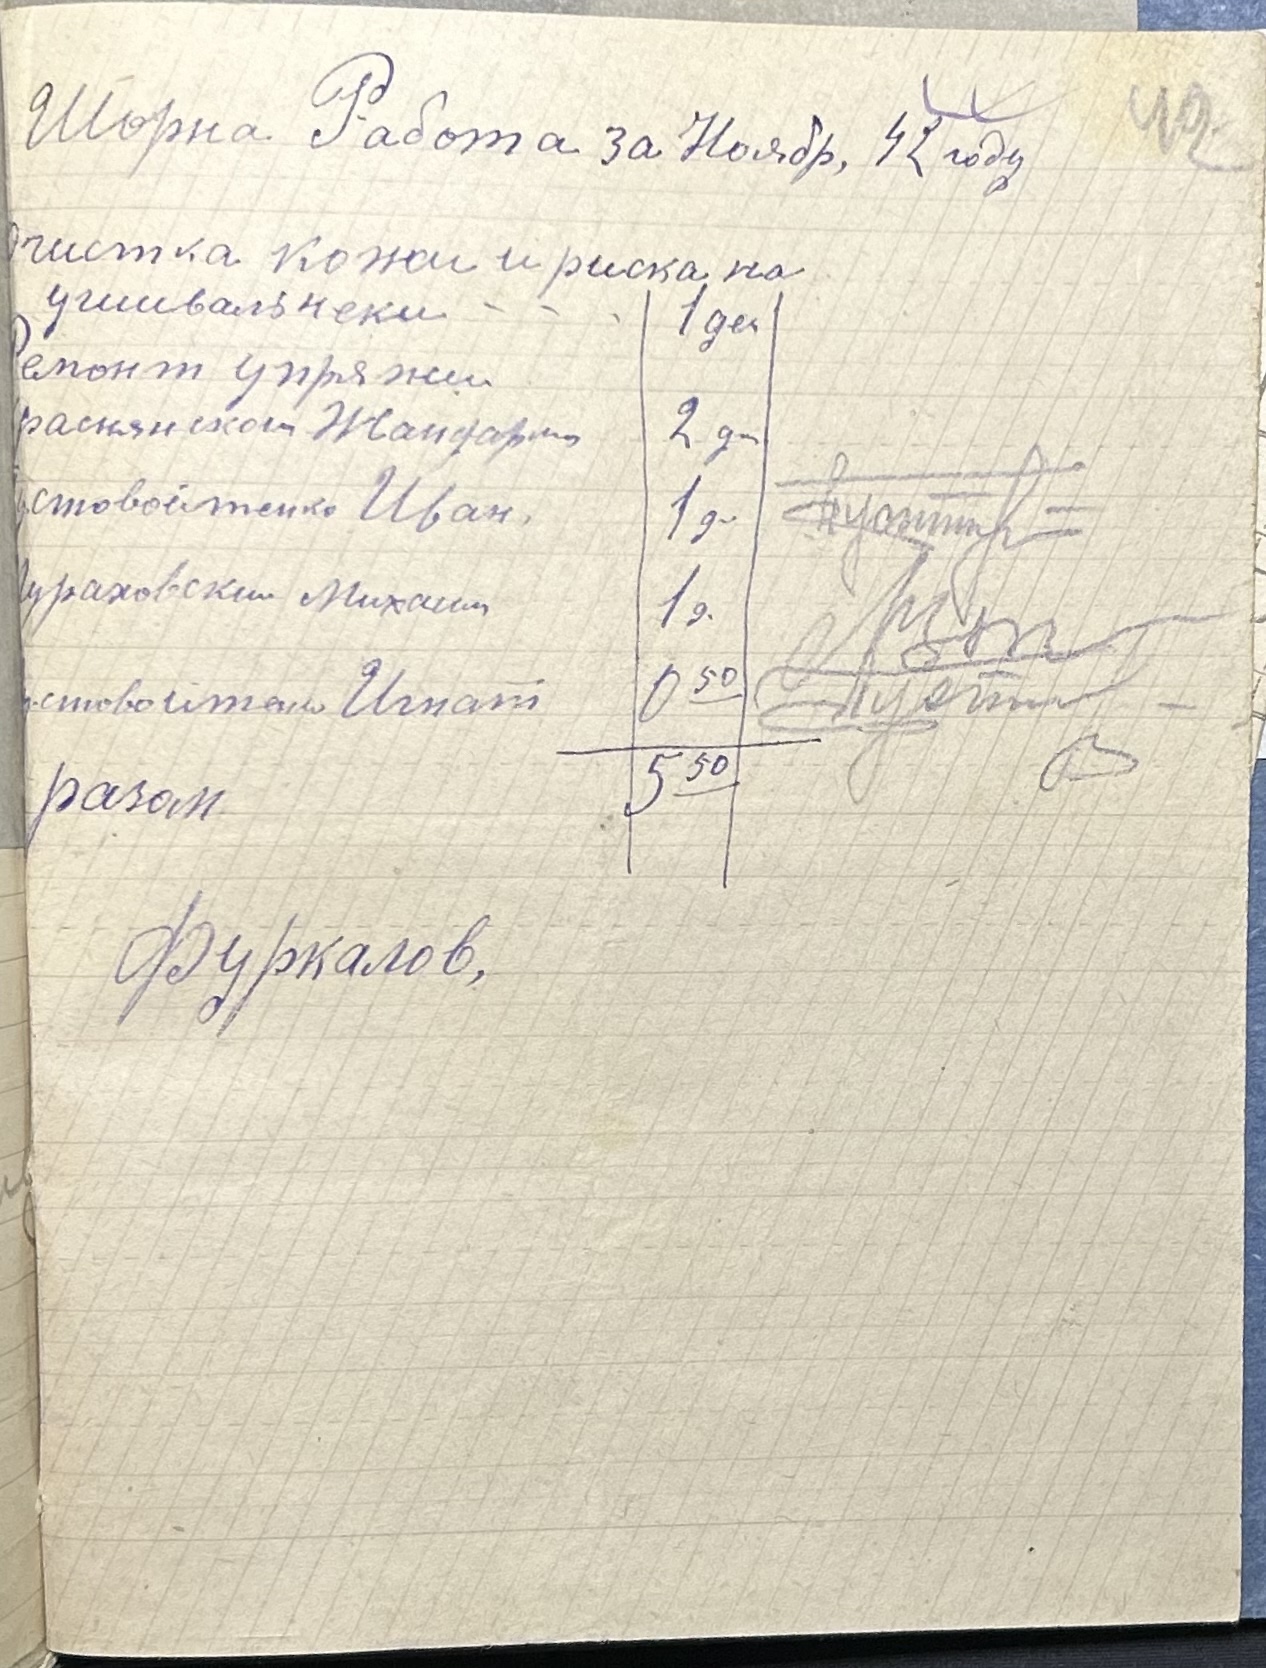 Шорна Работа за Ноябр, 42 году
42
очистка кожи и риска на
ушивальнеки - - . 1 ден
Ремонт упряжи
Краснянском Жандарм 2 дн
устовойтенко Иван. 1 д
Мураховский Михаил 1 д.
устовойтенко Игнат 0 50
разом 5 50
Фуркалов,